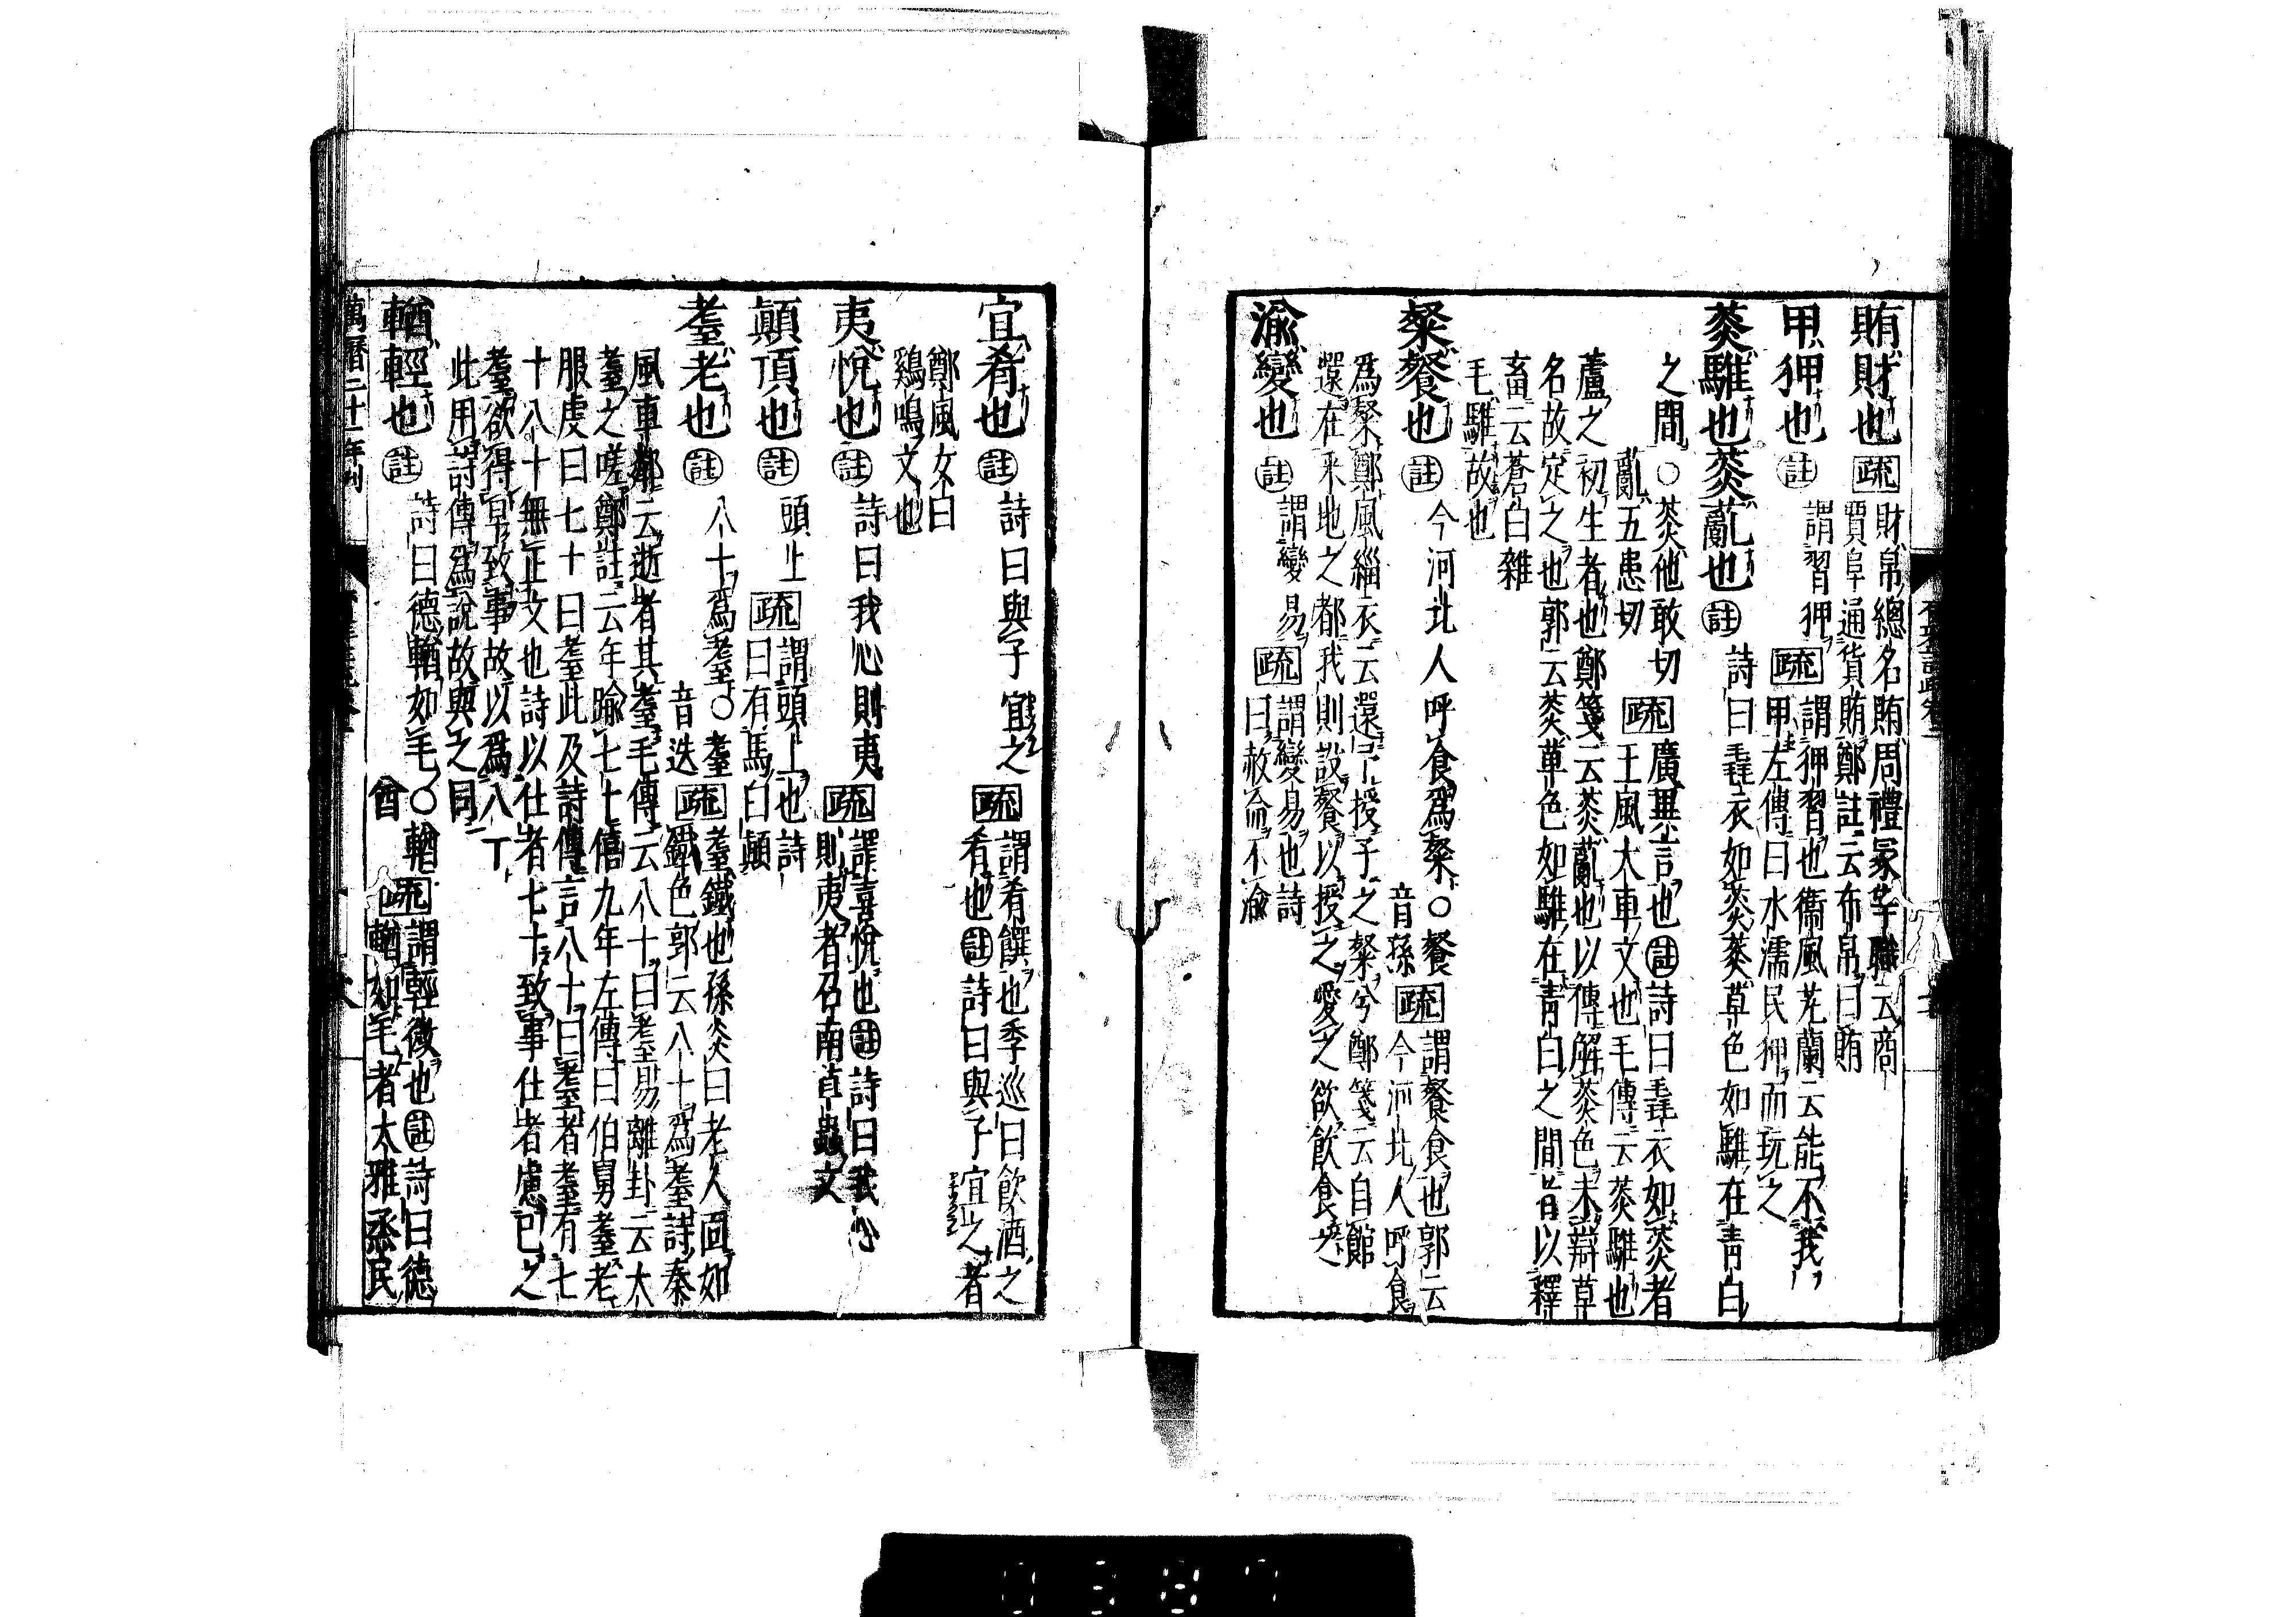 賄財也疏財帛總名賄周禮冢宰職云商
賈阜通貨賄鄭註云布帛曰賄
甲狎也註謂習狎疏謂狎習也衞風芄蘭云能不我
甲左傳曰水濡民狎而玩之
菼騅也菼薍也註詩曰毳衣如菼菼草色如騅在青白
之間○菼他敢切
薍五患切疏廣異言也註詩曰毳衣如菼者
王風大車文也毛傳云菼騅也
蘆之初生者也鄭箋云菼薍也以傳解菼色未辯草
名故定之也郭云菼草色如騅在青白之間昔以釋
畜云蒼白雜
毛騅故也
粲餐也註今河北人呼食爲粲○餐
音孫疏謂餐食也郭云
今河北人呼食
爲粲鄭風緇衣云還予授子之粲兮鄭箋云自館
還在采地之都我則設餐以授之愛之欲飲食之
渝變也註謂變易疏謂變易也詩
曰赦渝不渝
宜肴也註詩曰與子宜之疏謂肴饌也季巡曰飮酒之
肴也註詩曰與子宜之者
鄭風女曰
鷄鳴文也
夷悅也註詩曰我心則夷疏謂喜悅也註詩曰我心
則夷者召南草蟲文
顚頂也註頭上疏謂頭上也詩
曰有馬白顚
耋老也註八十爲耋○耋
音迭疏耋鐵也孫炎曰老人面如
鐵色郭云八十爲耋詩秦
風車鄰云逝者其耋毛傳云八十曰耋易離卦云大
耋之嗟鄭註云年踰七十僖九年左傳曰伯舅耋老
服虔曰七十曰耋此及詩傳言八十曰耋者耋有七
十八十無正文也詩以仕者七十致事仕者慮已之
耋欲得早致事故以爲八丁
此用詩傳爲說故與之同
輶輕也註詩曰德輶如毛○輶
酋疏謂輕微也註詩曰德
輶如毛者大雅烝民
萬曆二十一年刊